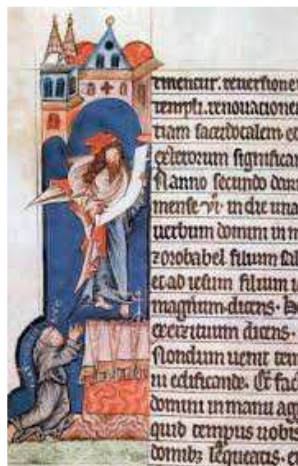 tinentur. reuersione
templi. renouatione
tiam sacerdotalem et
ceterorum significa
N anno secundo dar
mense vi in die una
uerbum domini in m
zorobabel filium sal
et ad iesum filium i
magnum dicens. h
exercituum dicens.
Nondum uenit tem
ni edificande. Et fac
domini in manu ag
quid tempus uobis
domibz laqueatis. e